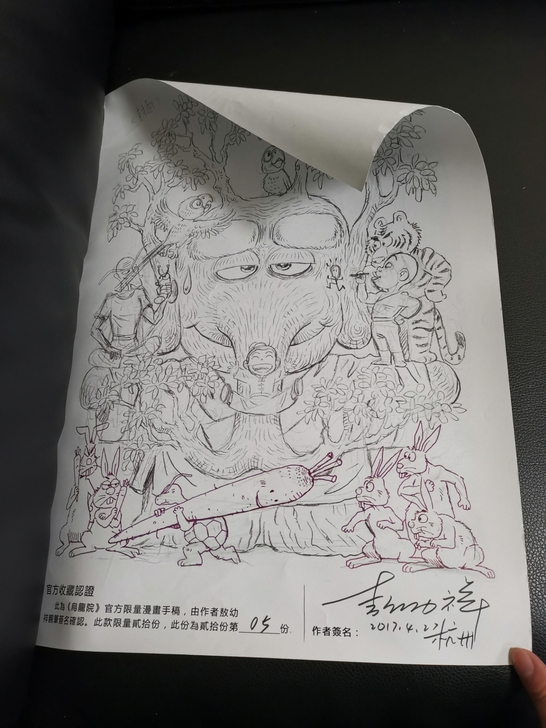 官方收藏認證
此為《烏龍院》官方限量漫畫手稿，由作者敖幼
祥親筆簽名確認。此款限量貳拾份，此份為貳拾份第 05 份
作者簽名：
敖幼祥
2017.4.27
杭州